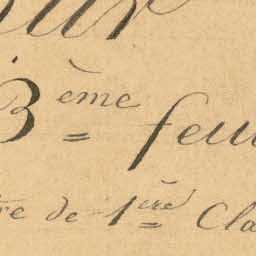 3ème feu
re de 1ère Cla